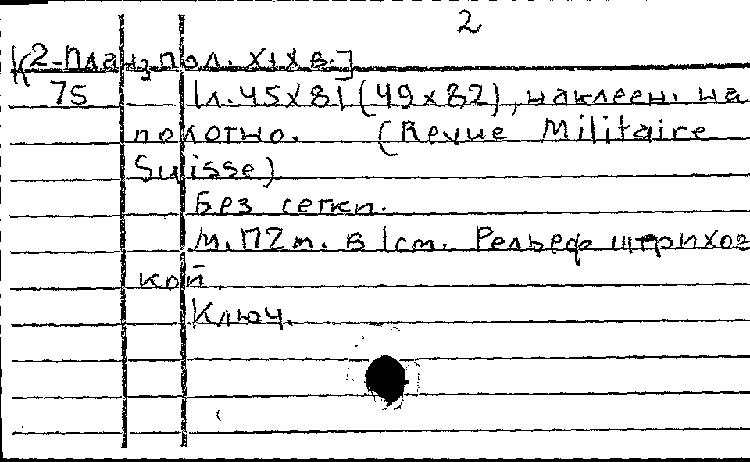 2
[(2-План, пол. XIX в.]
75 1 л. 45х81 (49х82), наклеен. на
полотно. (Revue Militaire
Suisse)
Без сетки.
м. 112 м. в 1 см. Рельеф штрихов
кой.
Ключ.